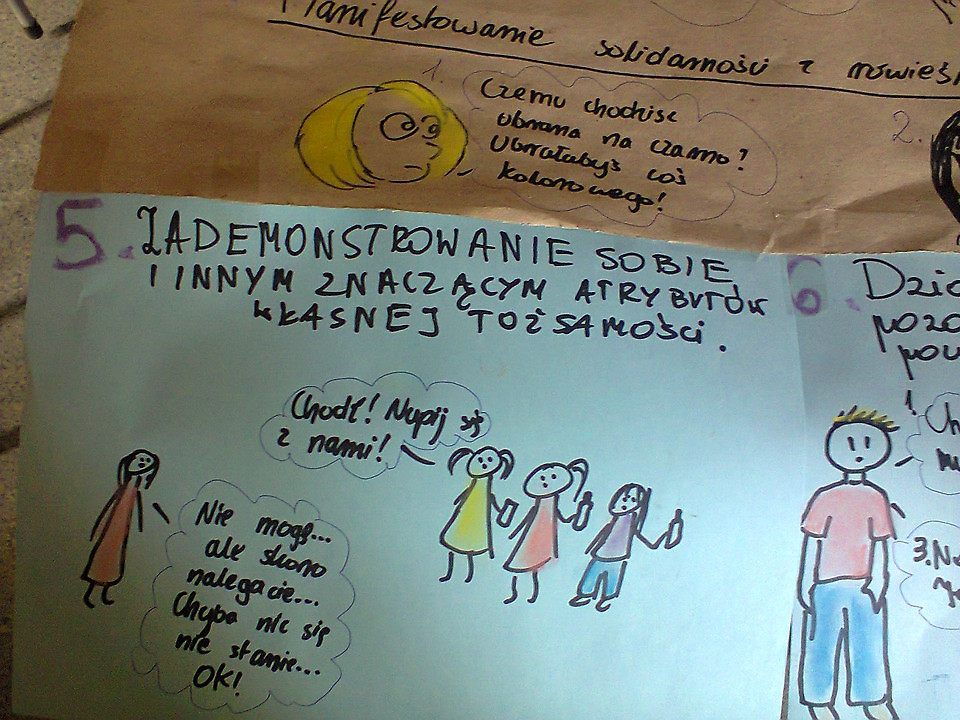 Manifestowanie solidarności z rówieśn
1.
Czemu chodzisz
ubrana na czarno?
Ubrałabyś coś
kolorowego!
2.
5. ZADEMONSTROWANIE SOBIE
I INNYM ZNACZĄCYM ATRYBUTÓW
WŁASNEJ TOŻSAMOŚCI.
Chodź! Napij się
z nami!
Nie mogę...
ale skoro
nalegacie...
Chyba nic się
nie stanie...
OK!
6. Dzi
pozo
pow
1. Ch
3. No